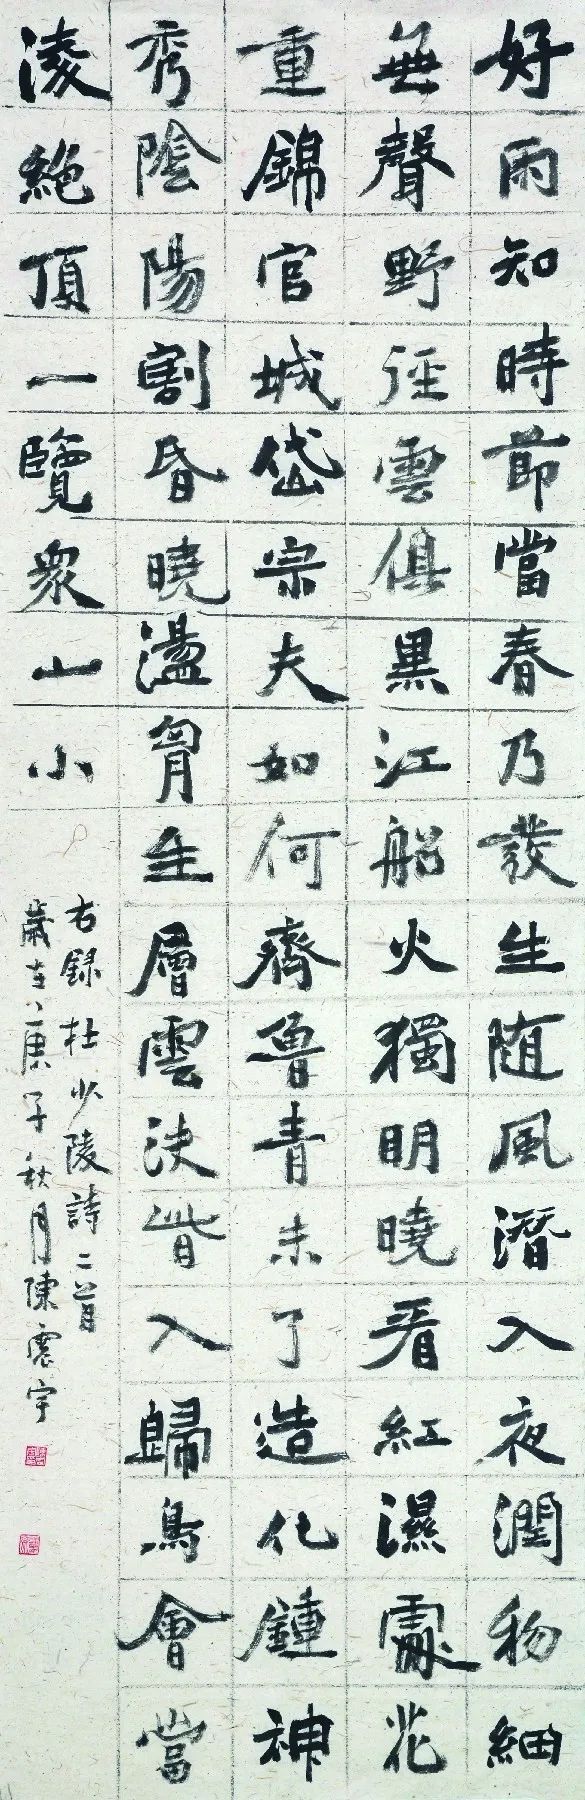 好雨知時節當春乃發生随風潛入夜潤物細
無聲野徑雲俱黑江船火獨明曉看紅濕處花
重錦官城岱宗夫如何齊魯青未了造化鍾神
秀陰陽割昏曉盪胷生層雲決眥入歸鳥會當
淩絕頂一覽衆山小
右録杜少陵詩二首
歲在庚子秋月陳震宇